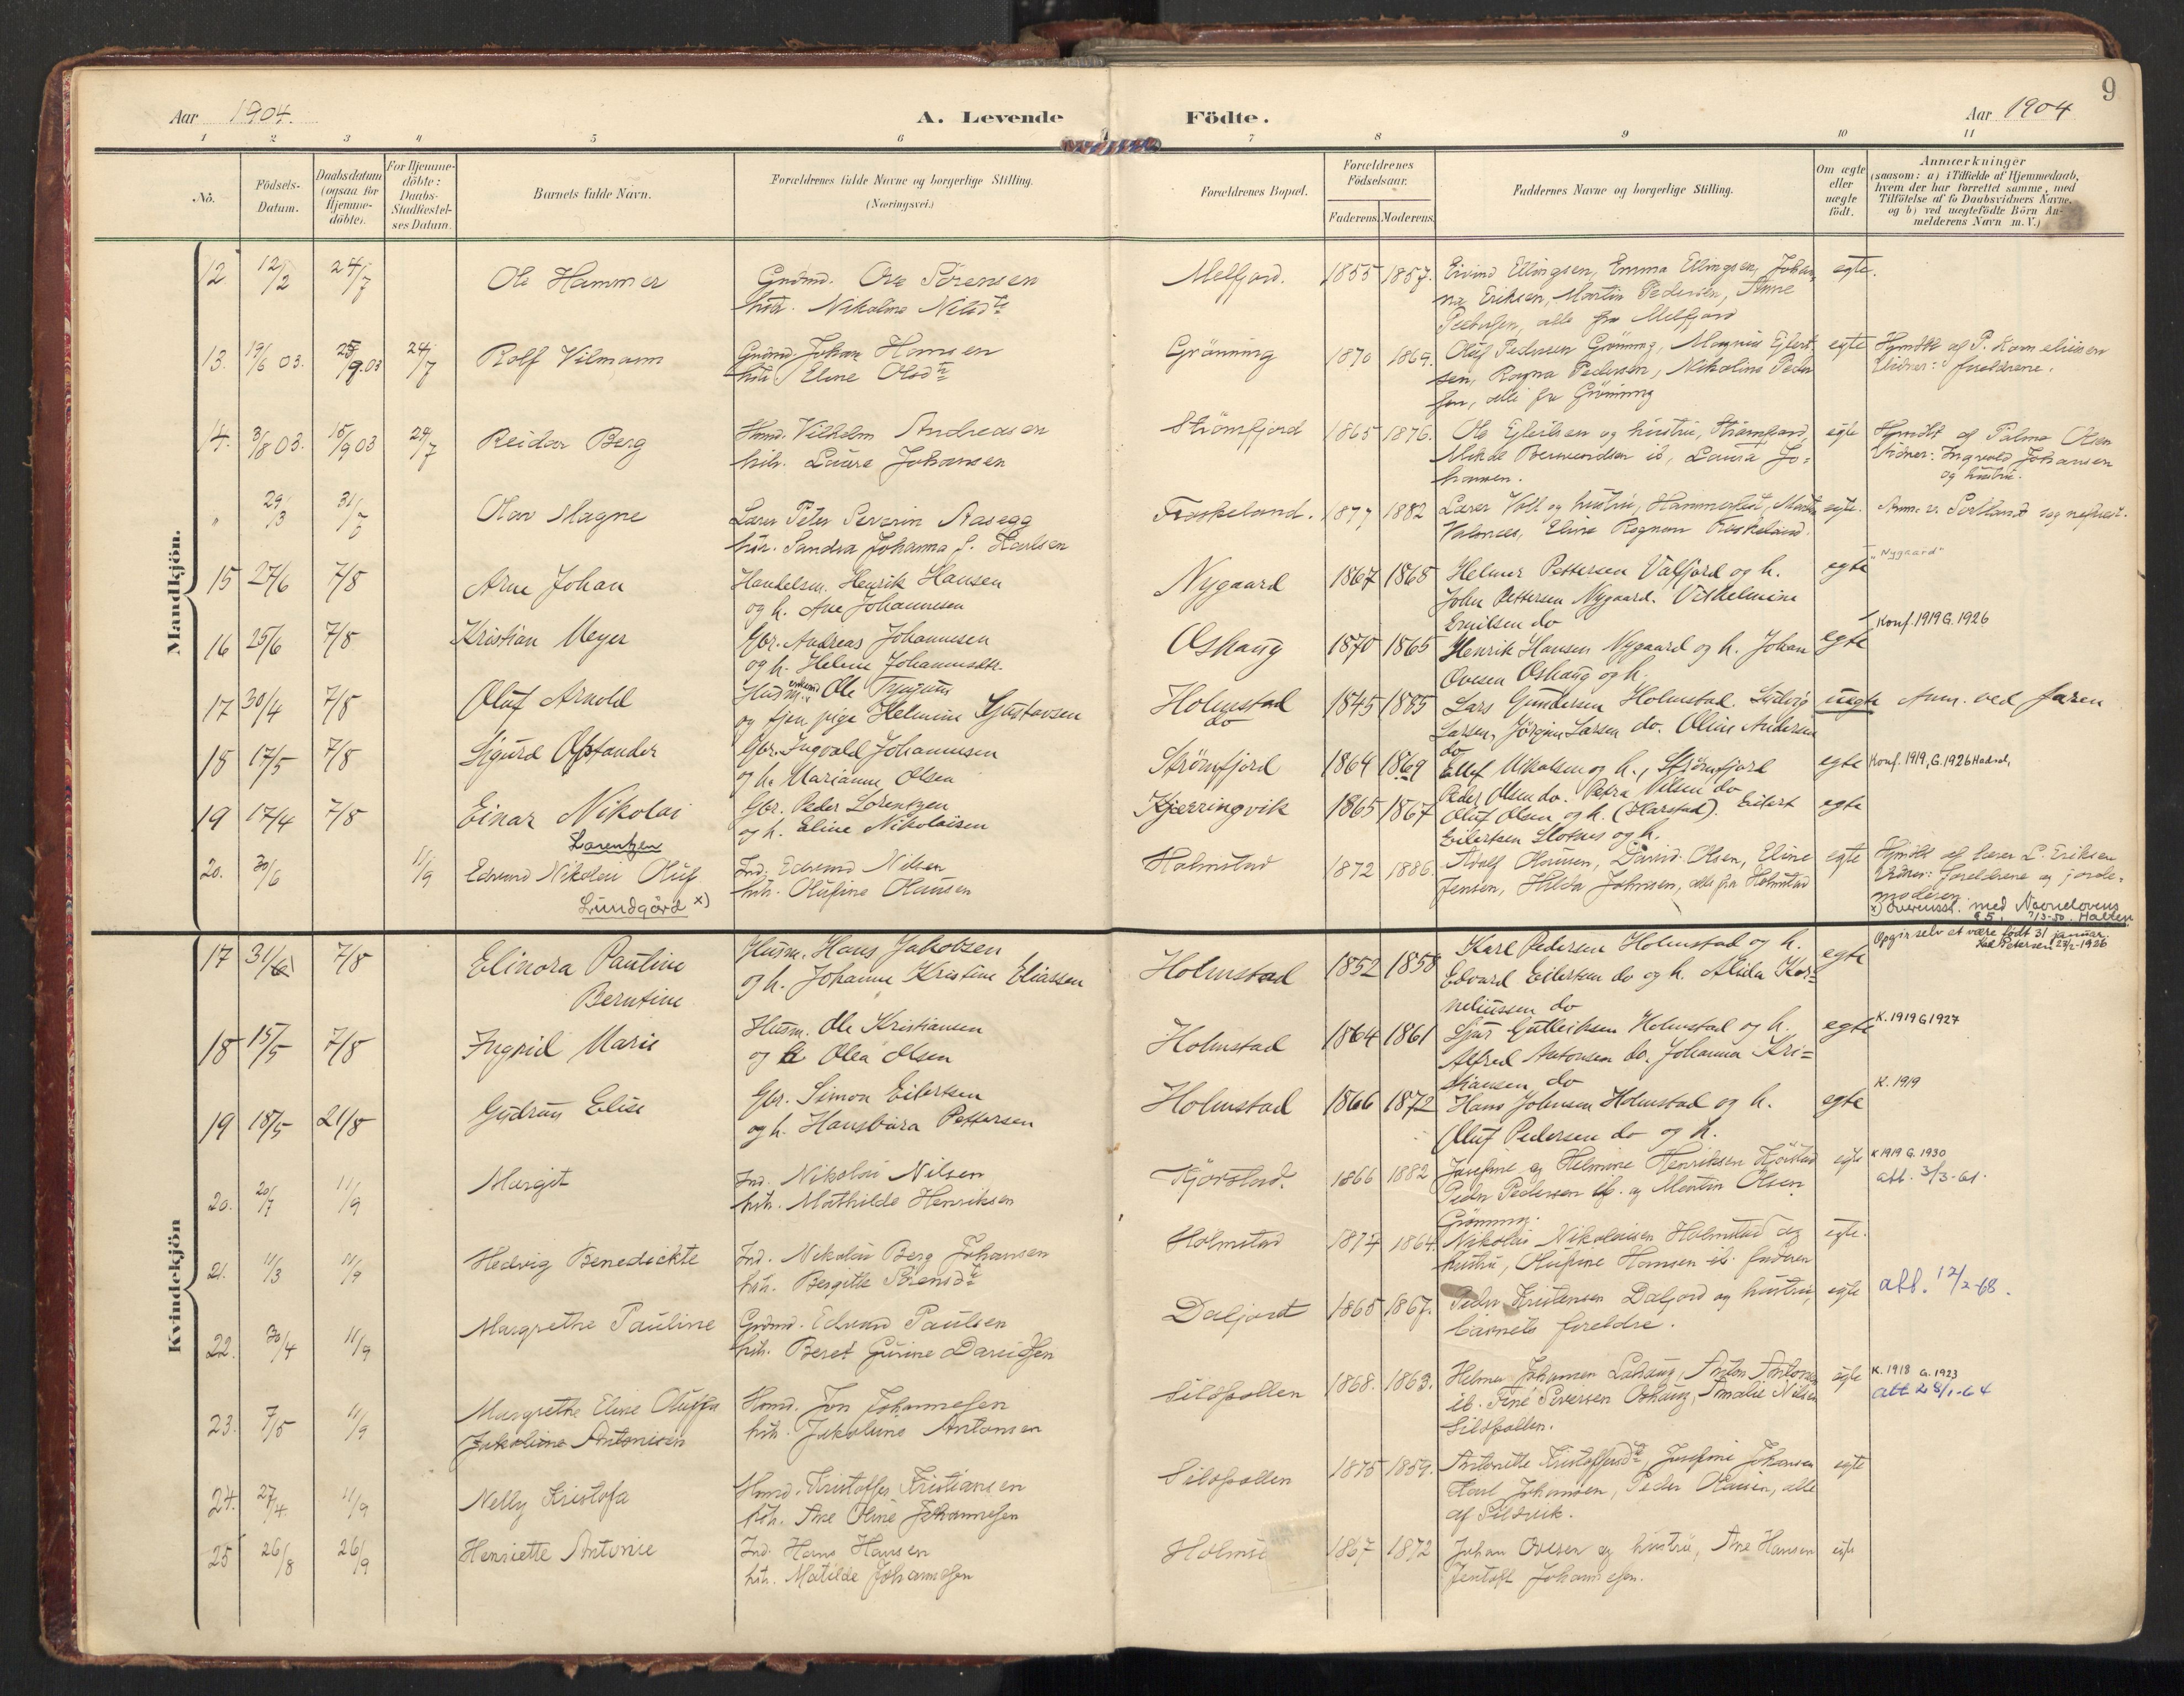 9
Aar 1904.
A. Levende Födte.
Aar 1904
1 2 3 4 5 6 7 8 9 10 11
No.
Födsels-
Datum.
Daabsdatum
(ogsaa for
Hjemme-
döbte).
For Hjemme-
döbte:
Daabs-
Stadfæstel-
ses Datum.
Barnets fulde Navn.
Forældrenes fulde Navne og borgerlige Stilling.
(Næringsvei.)
Forældrenes Bopæl.
Forældrenes
Födselsaar.
Faderens. Moderens.
Faddernes Navne og borgerlige Stilling.
Om ægte
eller
uægte
födt.
Anmærkninger
(saasom: a) i Tilfælde af Hjemmedaab,
hvem der har forrettet samme, med
Tilföielse af to Daabsvidners Navne.
og b) ved uægtefödte Börn An-
melderens Navn m. V.)
Mandkjön.
12. 12/2 24/7
Ole Hammer
Grdmd. Ove Sörensen
hstr. Nikoline Nilsdtr
Melfjord. 1855 1857.
Eivind Ellingsen, Emma Ellingsen, Johan-
na Eriksen, Martin Pedersen, Anne
Pedersen, alle fra Melfjord
egte.
13. 19/6 03. 25/9.03 24/7
Rolf Vilmann
Grdmd. Johan Hansen
hstr. Eline Olsdtr
Grönning 1870 1869.
Oluf Pedersen Grönning, Magnus Eilert-
sen, Ragna Pedersen, Nikoline Peder
sen, alle fra Grönning
egte
Hjmdbt af P. Korneliusen
Vidner: foreldrene.
14. 3/8 03. 15/9 03 24/7
Reidar Berg
Hmd. Vilhelm Andreasen
hstr. Laura Johansen
Strömfjord 1865 1876.
Ole Eilertsen og hustru, Strömfjord,
Mikal Bernundsen ib, Laura Jo-
hansen.
egte
Hjmdbt af Palma Olsen
Vidner: Ingvald Johansen
og hustru.
" 29/3 31/7
Olav Magne
Lærer Peter Severin Aasegg
hstr. Sandra Johanna f. Karlsen
Froskeland. 1877 1882
Lærer Voll og hustru, Hammerfest, Martin
Valsnes, Eline Rognan Froskeland.
egte.
Anm. v. Sortland sognepræst.
15 27/6 7/8
Arne Johan
Handelsm. Henrik Hansen
og h. Ane Johannesen
Nygaard 1867 1868
Helmer Pettersen Valfjord og h.
John Pettersen Nygaard. Vilhelmine
Emilsen do
egte
"Nygaard"
16 25/6 7/8
Kristian Meyer
Gbr. Andreas Johannesen
og h. Helene Johannesdtr.
Oshaug 1870 1865
Henrik Hansen Nygaard og h. Johan
Ovesen Oshaug og h.
egte
Konf. 1919 G. 1926
17 30/4 7/8
Oluf Arnold
Husm. enkemd Ole
og tjen. pige Helmine Gustavsen
Holmstad
do
1845 1885
Lars Gundersen Holmstad. Ludvig
Larsen, Jörgine Larsen do. Oline Andersen
do
uegte
Anm. ved faren
18 17/5 7/8
Sigurd
Gbr. Ingvald Johannesen
og h. Marianne Olsen
Strömfjord 1864 1869
Ellef Mikalsen og h., Strömfjord
Peder Olsen do. Petra Nilsen do
egte
Konf. 1919, G. 1926 Hadsel,
19 17/4 7/8
Einar Nikolai
Lorentzen
Gbr. Peder Lorentzen
og h. Eline Nikolaisen
Kjærringvik 1865 1867
Oluf Olsen og h. (Harstad). Eilert
Eilertsen Slotnes og h.
egte
20. 30/6 11/9
Edvard Nikolai Oluf
Lundgård x)
Ind. Edvard Nilsen
hstr. Olufine Hansen
Holmstad 1872 1886.
Adolf Hansen, David Olsen, Eline
Jensen, Hilda Johnsen, alle fra Holmstad
egte
Hjmdbt af lærer L. Eriksen
Vidner: foreldrene og jorde-
moderen.
x) Overensst. med Navnelovens
§ 5, 7/3-50. Halten
Kvindekjön
17 31/6) 7/8
Elinora Pauline
Berntine
Husm. Hans Jakobsen
og h. Johanne Kristine Eliassen
Holmstad 1852 1858
Karl Pedersen Holmstad og h.
Edvard Eilertsen do og h. Alida Kor-
neliussen do
egte
Opgir selv at være född 31 januar.
Petersen 27/2-1926
18 15/5 7/8
Ingrid Marie
Husm. Ole Kristiansen
og h Olea Olsen
Holmstad 1864 1861
Gulleiksen Holmstad og h.
Alfred Antonsen do. Johanna Kri-
stiansen do
egte
K. 1919 G 1927
19 18/5 21/8
Gudrun Elise
Gbr. Simon Eilertsen
og h. Hansbara Pettersen
Holmstad 1866 1872
Hans Johnsen Holmstad og h.
Oluf Pedersen do og h.
egte
K. 1919
20. 20/7 11/9
Margit
Ind. Nikolai Nilsen
hstr. Mathilde Henriksen
Kjörstad. 1866 1882
Josefine og Helmine Henriksen Kjörstad
Peder Pedersen ib. og Martin Olsen
Grönning.
egte
K 1919 G. 1930
att. 3/3-61.
21. 11/3 11/9
Hedvig Benedickte
Ind. Nikolai Berg Johansen
hstr. Bergitte Sörensdtr
Holmstad 1874 1864.
Nikolai Nikolaisen Holmstad og
hustru, Olufine Hansen ib. faderen
egte.
22. 30/4 11/9
Margrethe Pauline
Grdmd. Edvard Paulsen
hstr. Beret Gurine Davidsen
Daljord 1865 1867.
Peder Kristensen Daljord og hustru,
barnets foreldre.
egte
att. 12/2-68.
23. 7/5 11/9
Margrethe Eline Oluffa
Jakobine Antonisen
Hmd. Jon Johannesen
hstr. Jakobine Antonsen
Sildpollen 1868. 1863.
Helmer Johansen Lahaug, Anton Antonsen
ib. Fine Seversen Oshaug, Amalie Nilsen
Sildpollen.
egte
K. 1918 G. 1923
att 28/1-64
24. 27/4. 11/9
Nelly Kristofa
Hmd. Kristoffer Kristiansen
hstr. Ane Oline Johannesen
Sildpollen 1875 1859.
Antonette Kristoffersdtr, Josefine Johansen
Karl Johansen, Peder Hansen, alle
af Sildvik.
egte
25 26/8 26/9
Henriette Antonie
Ind. Hans Hansen
hstr. Matilde Johannesen
Holms 1867 1872
Johan Ovesen og hustru, Ane Hansen
Jentoft Johannesen.
egte